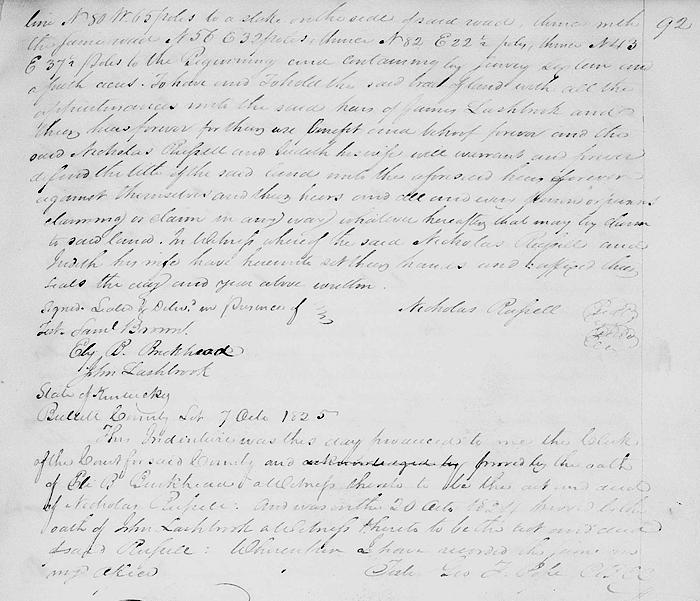 line N 80 W 65 poles to a stake on the side of said road, thence with
92
the same road N 56 E 32 poles, thence N 82 E 22½ poles, thence N 43
E 37½ poles to the Beginning and containing by survey and
acres. To have and To hold the said tract of land with all the
appurtenances unto the said heirs of James Lashbrook and
their heirs forever for their use benefit and behoof forever and the
said Nicholas Russell and Judith his wife will warrant and forever
defend the title of the said land unto the aforesaid heirs forever
against themselves and their heirs and all and every person or persons
claiming or claim in any way whatever hereafter that may by claim
to said land. In Witness whereof the said Nicholas Russell and
Judith his wife have hereunto set their hands and affixed their
seals the day and year above written.
Signed Sealed & Deliv.d in presence of
Nicholas Russell
Test. Saml Brown.
B. Buckhead
John Lashbrook
State of Kentucky
County Sct 7 Octo 1825
This Indenture was this day produced to me the Clerk
of the Court for said County and acknowledged by proved by the oath
of Buckhead a Witness thereto to be the act and deed
of Nicholas Russell: And was on the 20 Octo 1824 proved by the
oath of John Lashbrook a Witness thereto to be the act and deed
of said Russell: Whereupon I have recorded the same in
my office
Teste Pope